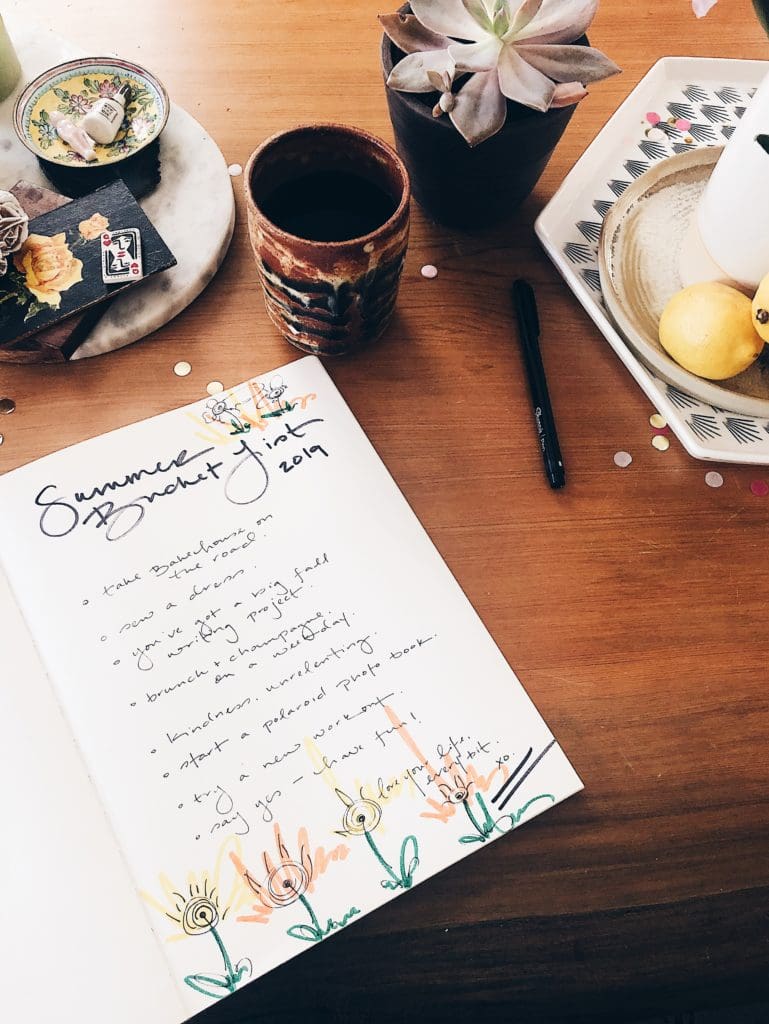 Summer
Bucket List
2019
take Bakehouse on
the road.
sew a dress.
you've got a big fall
writing project.
brunch + champagne.
on a weekday.
kindness. unrelenting.
start a polaroid photo book.
try a new workout.
say yes - have fun!
love your life.
every bit.
xo.